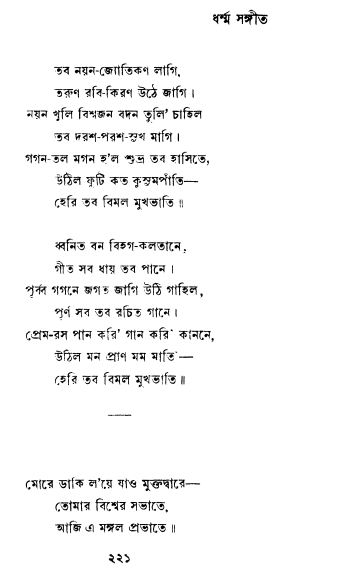 ধর্ম্ম সঙ্গীত
তব নয়ন-জ্যোতিকণ লাগি,
তরুণ রবি-কিরণ উঠে জাগি।
নয়ন খুলি বিশ্বজন বদন তুলি' চাহিল
তব দরশ-পরশ-সুখ মাগি।
গগন-তল মগন হ'ল শুভ্র তব হাসিতে,
উঠিল ফুটি কত কুসুমপাঁতি—
হেরি তব বিমল মুখভাতি॥
ধ্বনিত বন বিহগ-কলতানে,
গীত সব ধায় তব পানে।
পূর্ব্ব গগনে জগত জাগি উঠি গাহিল,
পূর্ণ সব তব রচিত গানে।
প্রেম-রস পান করি' গান করি' কাননে,
উঠিল মন প্রাণ মম মাতি'—
হেরি তব বিমল মুখভাতি॥
মোরে ডাকি ল'য়ে যাও মুক্তদ্বারে—
তোমার বিশ্বের সভাতে,
আজি এ মঙ্গল প্রভাতে॥
২২১